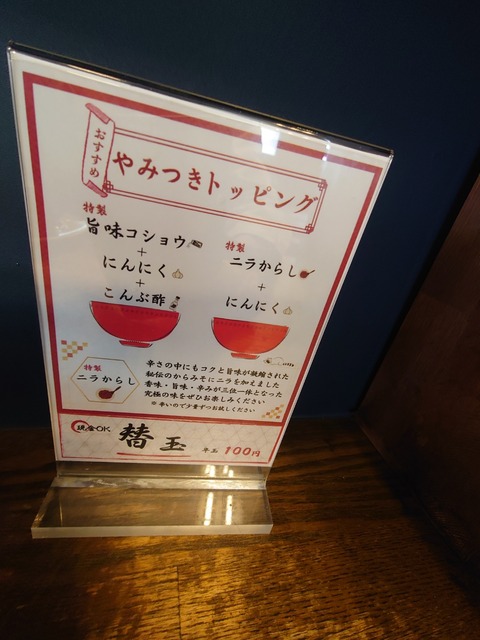 おすすめ
やみつきトッピング
特製
旨味コショウ
+
にんにく
+
こんぶ酢
特製
ニラからし
+
にんにく
特製
ニラからし
辛さの中にもコクと旨味が凝縮された
秘伝のからみそにニラを加えました
香味・旨味・辛みが三位一体となった
究極の味をぜひお楽しみください
※辛いので少量ずつお試しください
現金OK
替玉
半玉 100円